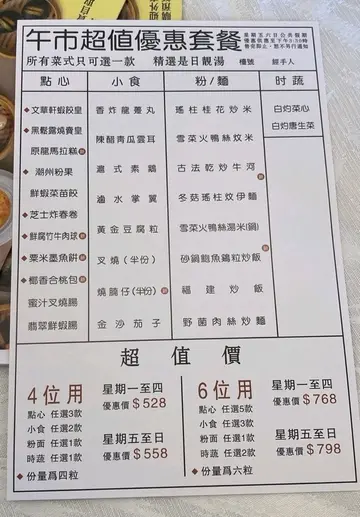 午市超值優惠套餐
星期五六日公眾假期
優惠供應至下午3:30時
善意即止，恕不另行通知
所有菜式只可選一款 精選是日靚湯 檯號 經手人
點心 小食 粉/麵 時蔬
◆文華鮮蝦餃皇
◆黑鬆露燒賣皇
原龍馬拉糕
◆潮州粉果
鮮蝦菜苗餃
◆芝士炸春卷
◆鮮腐竹牛肉球
◆粟米墨魚餅
◆椰香合桃包
蜜汁叉燒腸
翡翠鮮蝦腸
香炸龍躉丸
陳醋青瓜雲耳
滬式素鵝
滷水掌翼
黃金豆腐粒
叉燒(半份)
燒腩仔(半份)
金沙茄子
瑤柱桂花炒米
雪菜火鴨絲炆米
古法乾炒牛河
冬菇瑤柱炆伊麵
雪菜火鴨絲湯米(鍋)
砂鍋鮑魚鷄粒炒飯
福建炒飯
野菌肉絲炒麵
白灼菜心
白灼唐生菜
超值價
4位用
點心 任選3款
小食 任選2款
粉面 任選1款
時蔬 任選1款
◆份量爲四粒
星期一至四
優惠價$528
星期五至日
優惠價$558
6位用
點心 任選5款
小食 任選3款
粉面 任選1款
時蔬 任選2款
◆份量爲六粒
星期一至四
優惠價$768
星期五至日
優惠價$798